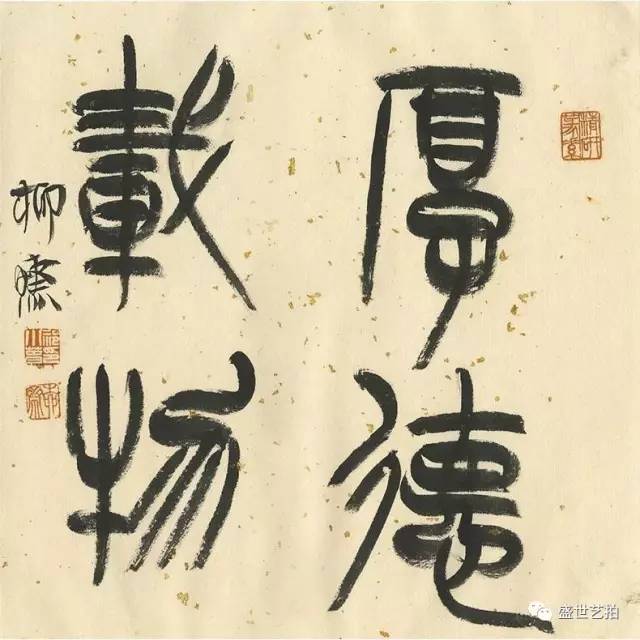 厚德
載物
柳
盛世艺拍